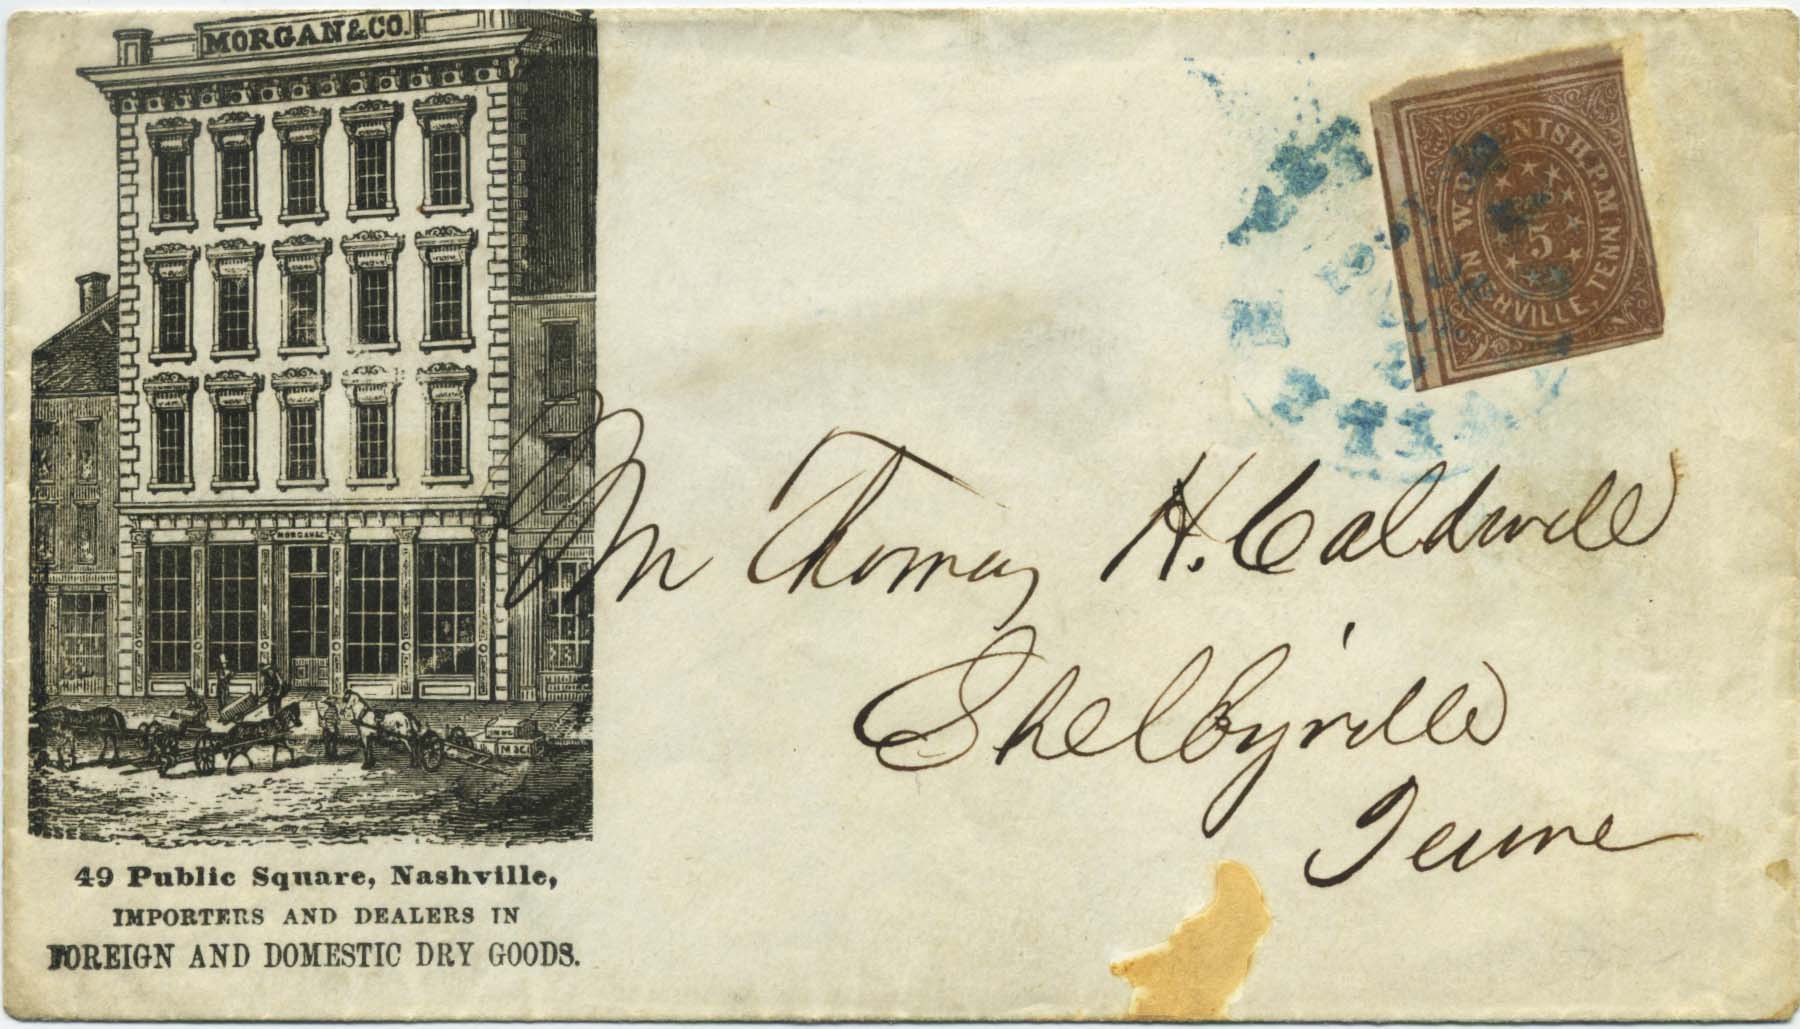 MORGAN & CO.
MORGAN & C
M & C
49 Public Square, Nashville,
IMPORTERS AND DEALERS IN
FOREIGN AND DOMESTIC DRY GOODS.
W.D. M'NISH, P.M.
5
NASHVILLE, TENN
PAID
Mr Thomas H. Caldwell
Shelbyville
Tenne